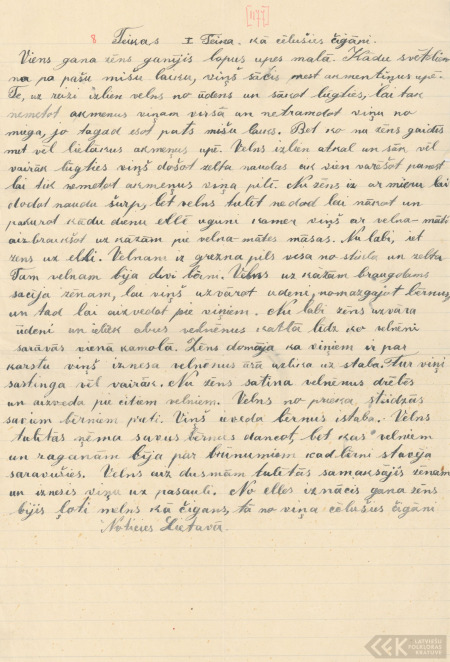 [1477]
8 Teikas I Teika. kā cēlušies čigāni.
Viens gana zēns ganījis lopus upes malā. Kādu svētdien
na pa pašu mišu laiku, viņš sācis mest akmentiņus upē.
Te, uz reizi izlien velns no ūdens un sākot lūgties, lai tak
nemetot akmenus viņam virsā un netramdot viņu no
muga, jo tagad esot pats mišu laiks. Bet ko nu zēns gaidīs
met vēl lielākus akmeņus upē. Velns izlien atkal un sāk vēl
vairāk lūgties viņš došot zelta naudas cik vien varēšot panest
lai tik nemetot akmeņus viņa pilī. Nu zēns ir ar mieru lai
dodot naudu šurp, bet velns tulēt nedod lai nākot un
pakurot kādu dienu ellē uguni kamēr viņš ar velna-māti
aizbraukšot uz kāzām pie velna-mātes māsas. Nu labi, iet
zēns uz elli. Velnam ir grezna pils vesa no stikla un zelta
Tam velnam bija divi bērni. Velns uz kāzām braugdams
sacīja zēnam, lai viņš uzvārot ūdeni, nomazgājot bērnus
un tad lai aizvedot pie viņiem. Nu labi zēns uzvāra
ūdeni un ieliek abus velnēnus katlā līdz ko velnēni
saraujas vienā kamolā. Zēns domāja ka viņiem ir par
karstu viņš iznesa velnēnus ārā uzlika uz staba. Tur viņi
sastinga vēl vairāk. Nu zēns satina velnēnus drēbēs
un aizveda pie citiem velniem. Velns no prieka, steidzās
saviem bērnam preti. Viņš ieveda bērnus istabā. Velns
tulītās ņēma savus bērnus dancot, bet kas velniem
un raganām bija par brīnumiem kad bērni stāvēja
saravušies. Velns aiz dusmām tulītās samaksājis zēnam
un iznesis viņu uz pasauli. No elles iznācis gana zēns
bijis ļoti melns kā čigans, tā no viņa cēlušies čigāni
Noticis Lietavā.
LATVIEŠU
FOLKLORAS
KRĀTUVE